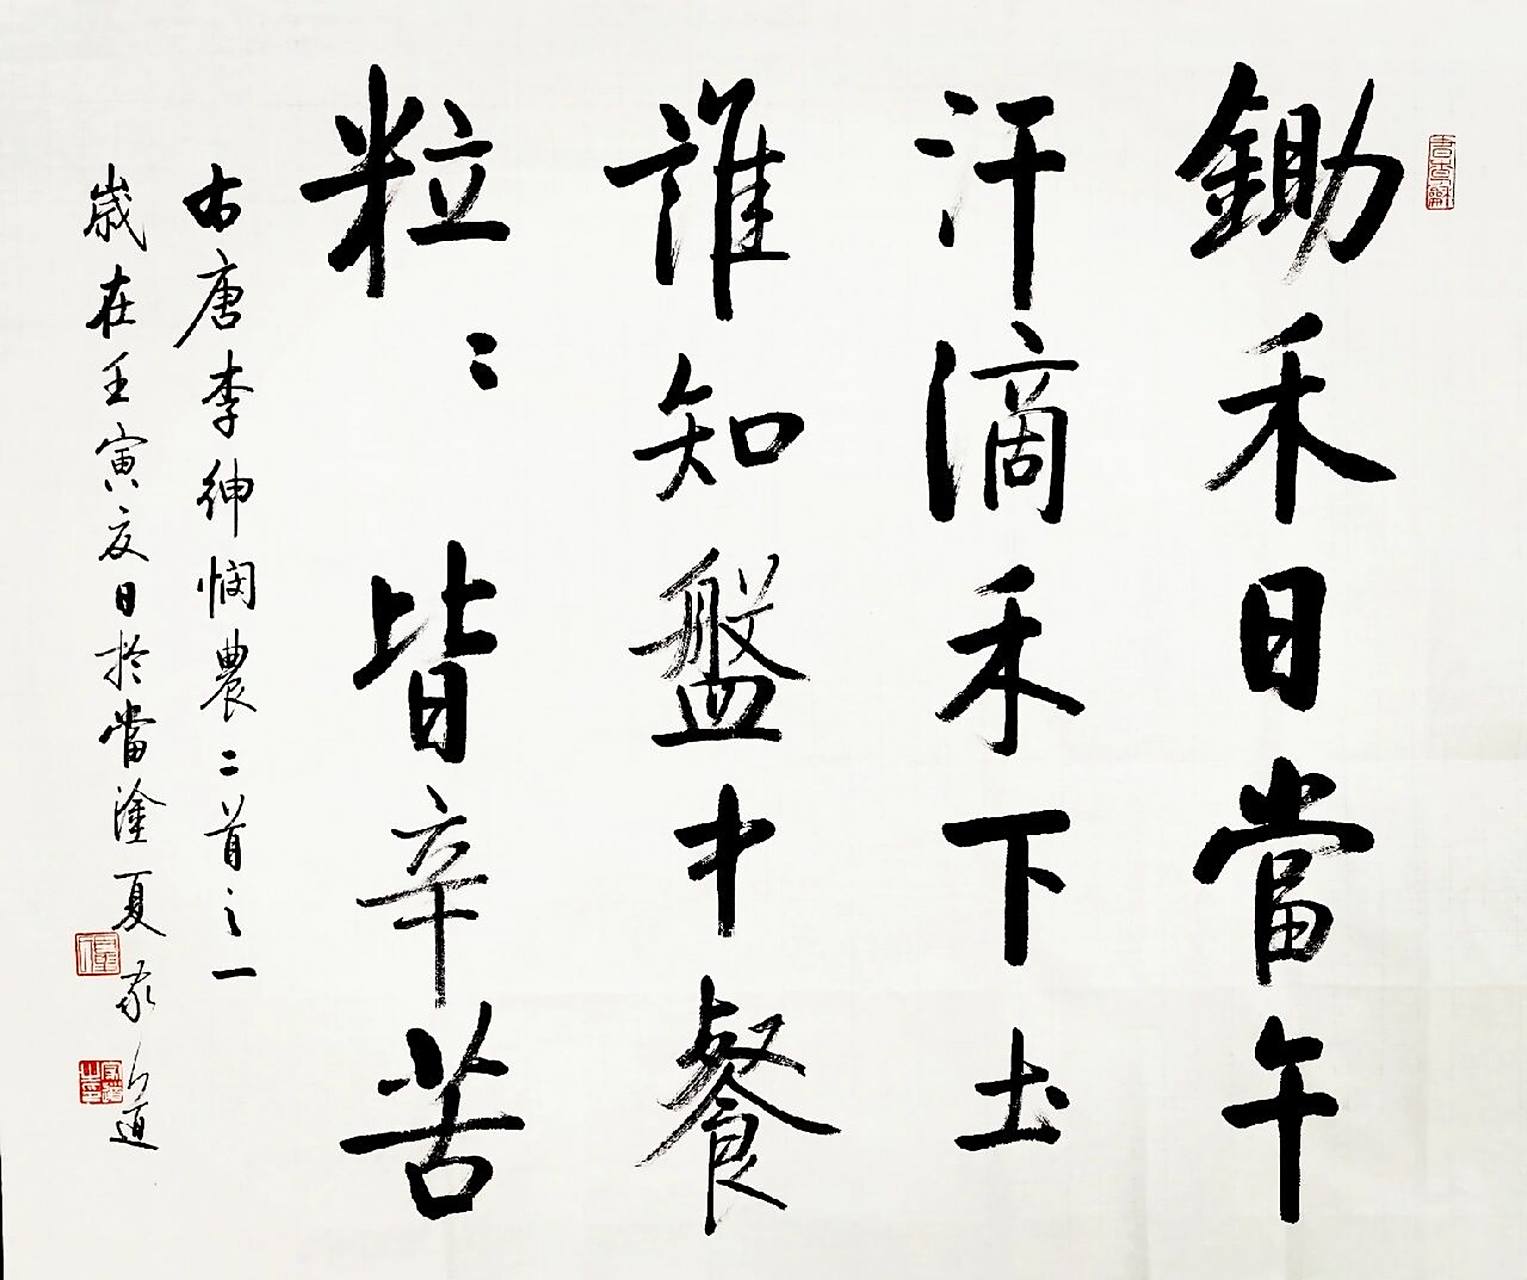 鋤禾日當午
汗滴禾下土
誰知盤中餐
粒〻皆辛苦
右唐李紳憫農二首之一
歲在壬寅夏日於當塗夏家道